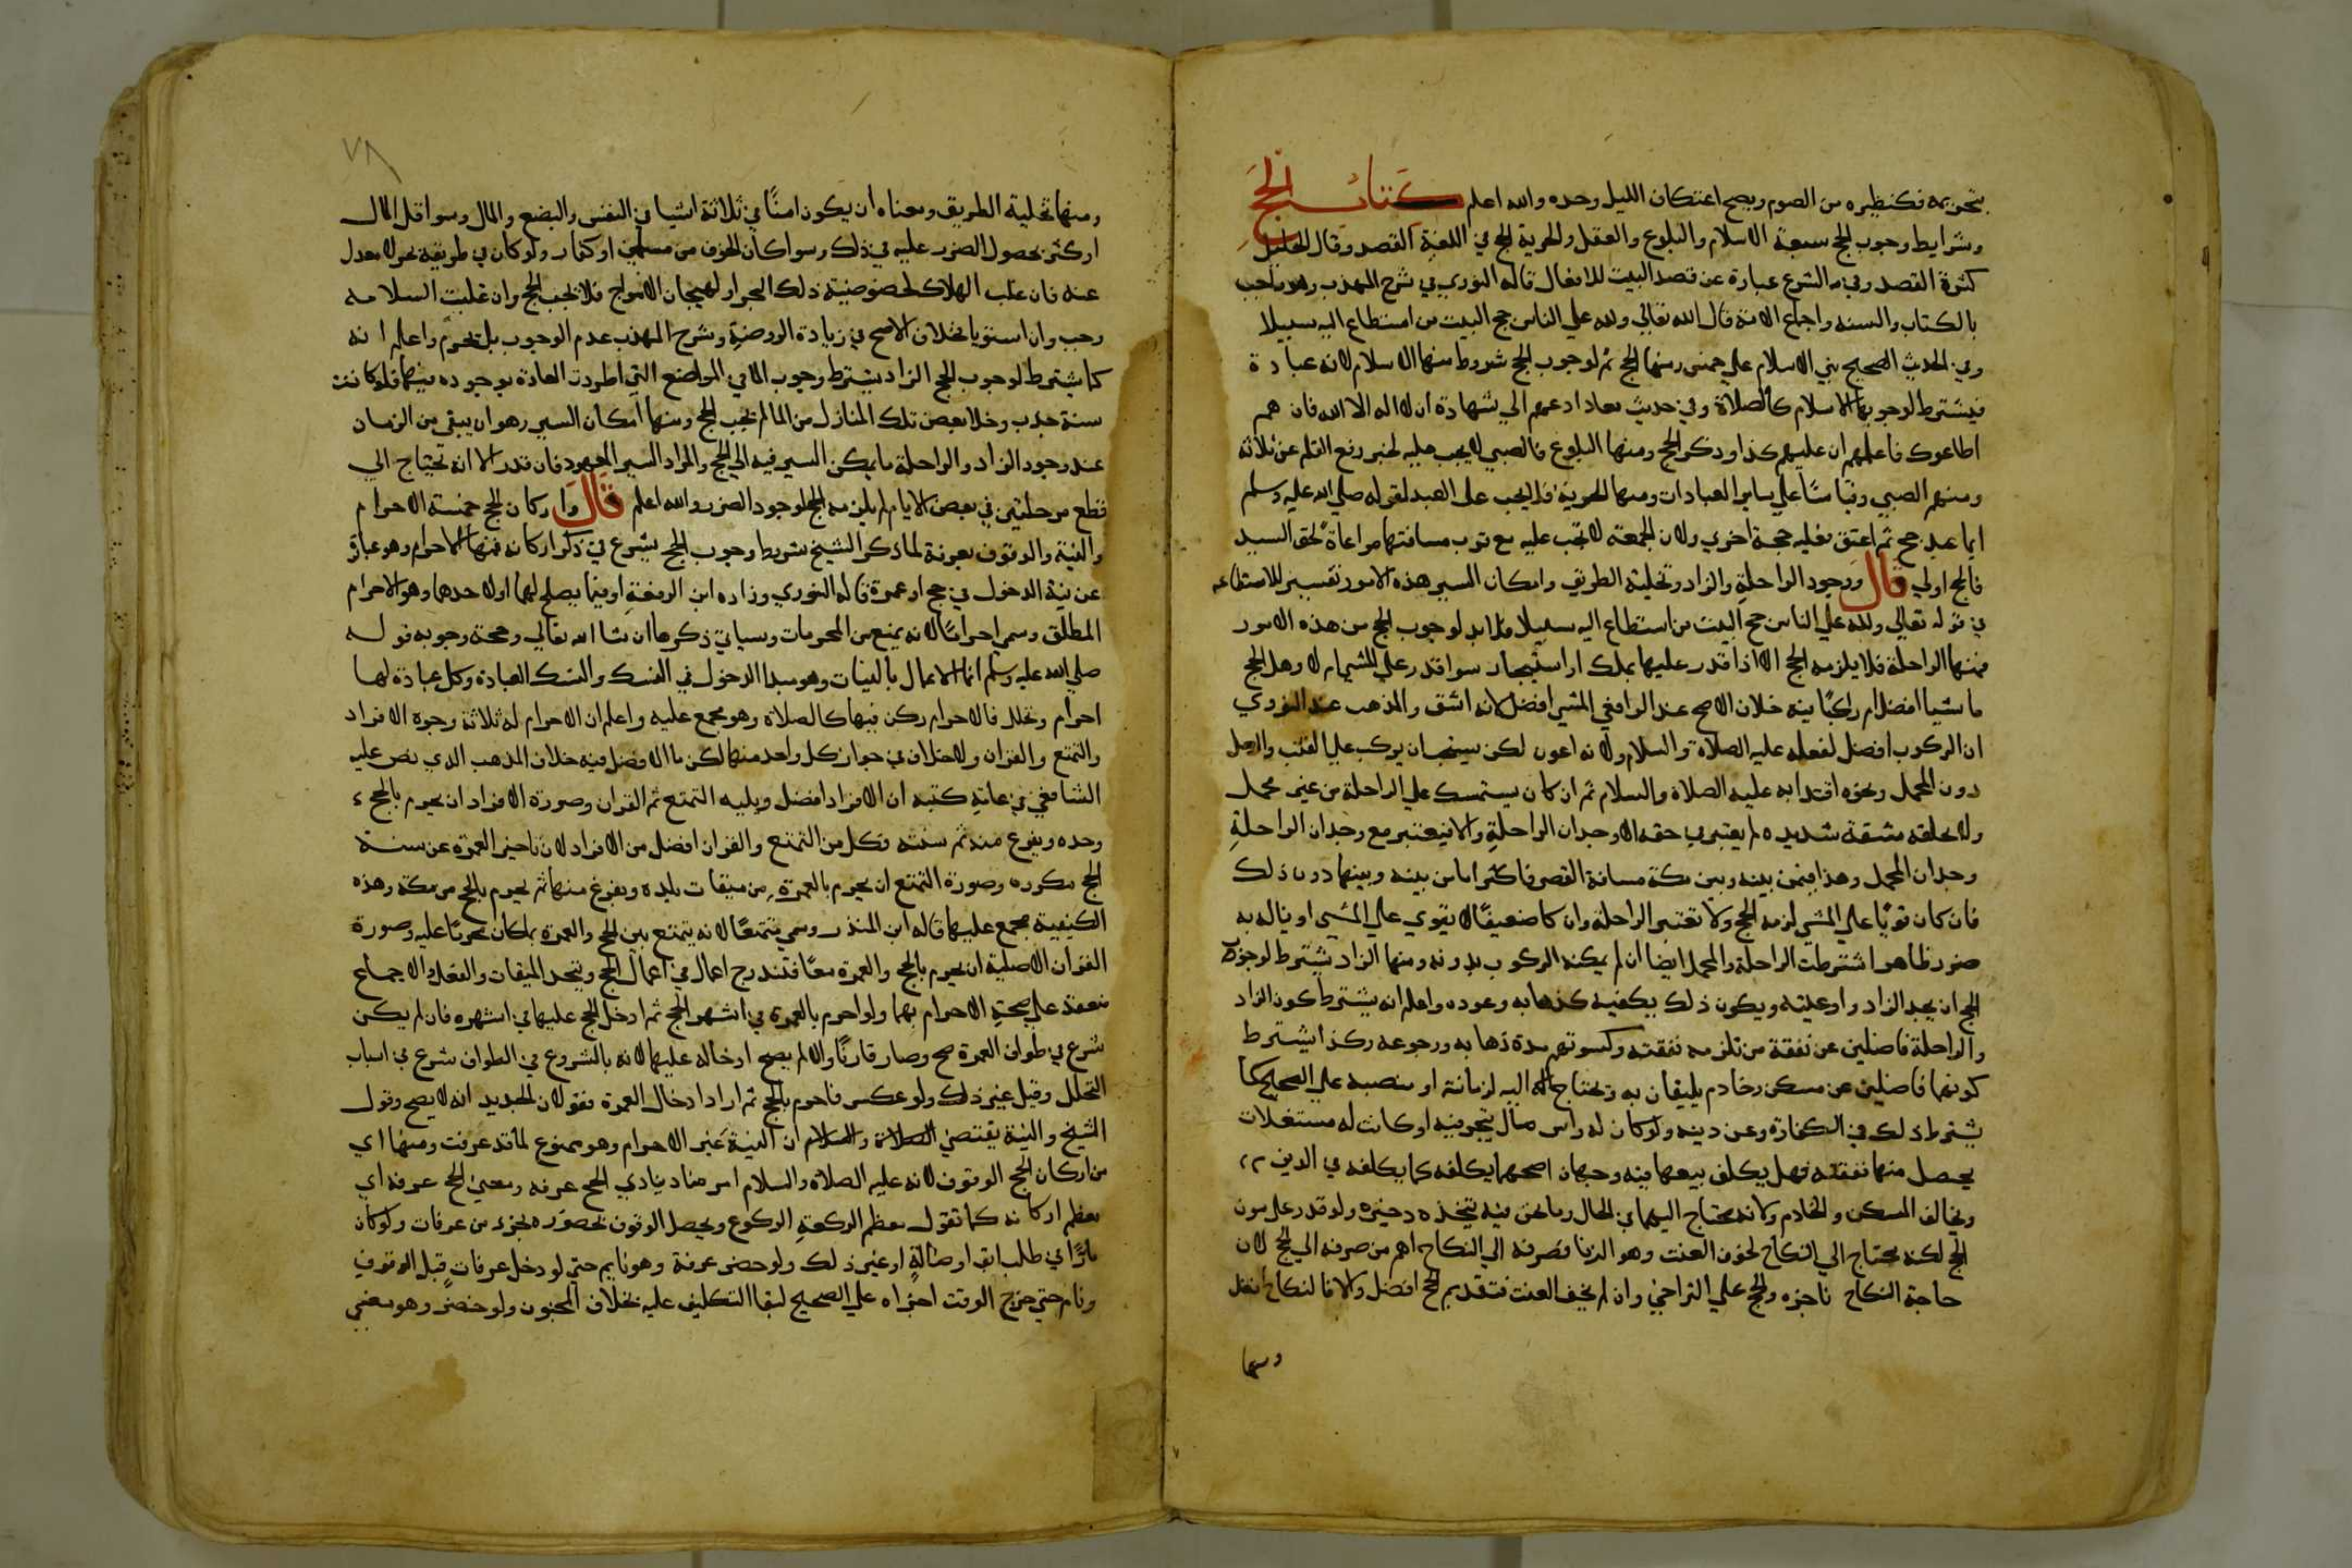 بتحريمه فكنظيره من الصوم ويصح اعتكاف الليل وحده والله اعلم كتاب الحج
وشرايط وجوب الحج سبعة الاسلام والبلوغ والعقل والحرية الحج في اللغة القصد وقال الخليل
كثرة القصد وفي الشرع عبارة عن قصد البيت للافعال قاله النووي في شرح المهذب وهو واجب
بالكتاب والسنه واجماع الامة قال الله تعالي ولله علي الناس حج البيت من استطاع اليه سبيلا
وفي الحديث الصحيح بني الاسلام علي خمس ومنها الحج ثم لوجوب الحج شروط منها الاسلام لانه عبادة
فيشترط لوجوبها الاسلام كالصلاة وفي حديث معاذ ادعهم الي شهادة ان لا اله الا الله فان هم
اطاعوك فاعلمهم ان عليهم كذا وذكر الحج ومنها البلوغ فالصبي لا يجب عليه لخبر رفع القلم عن ثلاثة
ومنهم الصبي وقياسًا علي ساير العبادات ومنها الحرية فلا يجب على العبد لقوله صلي الله عليه وسلم
ايما عبد حج ثم اعتق فعليه حجة اخري ولان الجمعة لا تجب عليه مع قرب مسافتها مراعاة لحق السيد
فالحج اولي قال ووجود الراحلة والزاد وتخلية الطريق وامكان المسير هذه الامور تفسير للاستطاعه
في قوله تعالي ولله علي الناس حج البيت من استطاع اليه سبيلا فلا بد لوجوب الحج من هذه الامور
فمنها الراحلة فلا يلزمه الحج الا اذا قدر عليها بملك او استيجار سوا قدر علي المشي ام لا وهل الحج
ماشيا افضل ام راكبًا فيه خلاف الاصح عند الرافعي المشي افضل لانه اشق والمذهب عند النووي
ان الركوب افضل لفعله عليه الصلاة والسلام ولانه اعون لكن يستحب ان يركب علي القتب والرحل
دون المحمل ونحوه اقتدا به عليه الصلاة والسلام ثم ان كان يستمسك علي الراحلة من غير محمل
ولا تلحقه مشقة شديده لم يعتبر في حقه الا وجدان الراحلة والا فيعتبر مع وجدان الراحلة
وجدان المحمل وهذا فيمن بينه وبين مكة مسافة القصر فاكثر اما من بينه وبينها دون ذلك
فان كان قويًا علي المشي لزمه الحج ولا تعتبر الراحلة وان كا ضعيفًا لا يقوي علي المشي او يناله به
ضرر ظاهر اشترطت الراحلة والمحمل ايضا ان لم يمكنه الركوب بدونه ومنها الزاد يشترط لوجوب
الحج ان يجد الزاد واوعيته ويكون ذلك يكفيه كذهابه وعوده واعلم انه يشترط كون الزاد
والراحلة فاضلين عن نفقة من تلزمه نفقته وكسوتهم مدة ذهابه ورجوعه وكذا يشترط
كونهما فاضلين عن مسكن وخادم يليقان به وتحتاج اليه لزمانة او منصبه علي الصحيح كما
يشترط ذلك في الكفارة وعن دينه ولو كان له راس مال يتجر فيه او كانت له مستغلات
يحصل منها نفقته فهل يكلف بيعها فيه وجهان اصحهما يكلفه كما يكلفه في الدين
ويخالف المسكن والخادم ولانه محتاج اليهما في الحال وما نحن فيه نتخذه ذخيره ولو قدر علي مون
الحج لكنه محتاج الي النكاح لخوف العنت وهو الزنا فصرفه الي النكاح اهم من صرفه الي الحج لان
حاجة النكاح ناجزه والحج علي التراخي وان لم يخف العنت فتقديم الحج افضل والا فالنكاح افضل
ومنها
٧٨
ومنها تخلية الطريق ومعناه ان يكون امنًا في ثلاثة اشيا في النفس والبضع والمال وسوا قل المال
او كثر لحصول الضرر عليه في ذلك وسوا كان الخوف من مسلمين او كفار ولو كان في طريقه بحر لا معدل
عنه فان غلب الهلاك لخصوصية ذلك البحر او لهيجان الامواج فلا يجب الحج وان غلبت السلامه
وجب وان استويا فخلاف الاصح في زيادة الروضة وشرح المهذب عدم الوجوب بل تحرم واعلم انه
كما يشترط لوجوب الحج الزاد يشترط وجوب الما في المواضع التي اطردت العادة بوجوده فيها فلو كانت
سنة جدب وخلا بعض تلك المنازل من الما لم يجب الحج ومنها امكان السير وهو ان يبقي من الزمان
عند وجود الزاد والراحلة ما يمكن السير فيه الي الحج والمراد السير المعهود فان قدر الا انه تحتاج الي
قطع مرحلتين في بعض الايام لم يلزمه الحج لوجود الضرر والله اعلم قال واركان الحج خمسة الاحرام
والنية والوقوف بعرفة لما ذكر الشيخ شروط وجوب الحج شرع في ذكر اركانه فمنها الاحرام وهو عبارة
عن نية الدخول في حج او عمرة قاله النووي وزاده ابن الرفعة او فيما يصلح لهما او لاحدهما وهو الاحرام
المطلق وسمي احرامًا لانه يمنع من المحرمات وسياتي ذكرها ان شا الله تعالي وحجة وجوبه قوله
صلي الله عليه وسلم انما الاعمال بالنيات وهو مبدا الدخول في النسك والنسك العبادة وكل عبادة لها
احرام وتحلل فالاحرام ركن فيها كالصلاة وهو مجمع عليه واعلم ان الاحرام له ثلاثة وجوه الافراد
والتمتع والقران ولا خلاف في جواز كل واحد منها لكن ما الافضل فيه خلاف المذهب الذي نص عليه
الشافعي في عامة كتبه ان الافراد افضل ويليه التمتع ثم القران وصورة الافراد ان يحرم بالحج
وحده ويفرغ منه ثم سنته فكل من التمتع والقران افضل من الافراد لان تاخير العمرة عن سنة
الحج مكروه وصورة التمتع ان يحرم بالعمرة من ميقات بلده ويفرغ منها ثم يحرم بالحج من مكة وهذه
الكيفية مجمع عليها قاله ابن المنذر وسمي متمتعًا لانه يتمتع بين الحج والعمرة بما كان محرمًا عليه وصورة
القران الاصلية ان يحرم بالحج والعمرة معًا فتندرج اعمال في اعمال الحج ويتحد الميقات والفعل والاجماع
منعقد علي صحة الاحرام بهما ولو احرم بالعمرة في اشهر الحج ثم ادخل الحج عليها في اشهره فان لم يكن
شرع في طواف العمرة صح وصار قارنًا والا لم يصح ادخاله عليها لانه بالشروع في الطواف شرع في اسباب
التحلل وقيل غير ذلك ولو عكس فاحرم بالحج ثم اراد ادخال العمرة فقولان الجديد انه لا يصح وقول
الشيخ والنية يقتضي الصلاة والسلام ان النية غير الاحرام وهو ممنوع لما قد عرفت ومنها اي
من اركان الحج الوقوف لانه عليه الصلاة والسلام امر مناديا ينادي الحج عرفه ومعني الحج عرفه اي
معظم اركانه كما تقول معظم الركعة الركوع ويحصل الوقوف بحضوره بجزء من عرفات ولو كان
مارًا في طلب ابق او ضالة او غير ذلك ولو حضر عرفة وهو نايم حتي لو دخل عرفات قبل الوقوف
ونام حتي خرج الوقت اجزاه علي الصحيح لبقا التكليف عليه بخلاف المجنون ولو حضر وهو مغمي